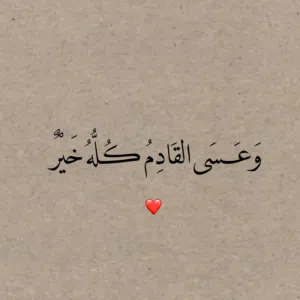 وَعَسَى القَادِمُ كُلُّهُ خَيرٌ
❤️